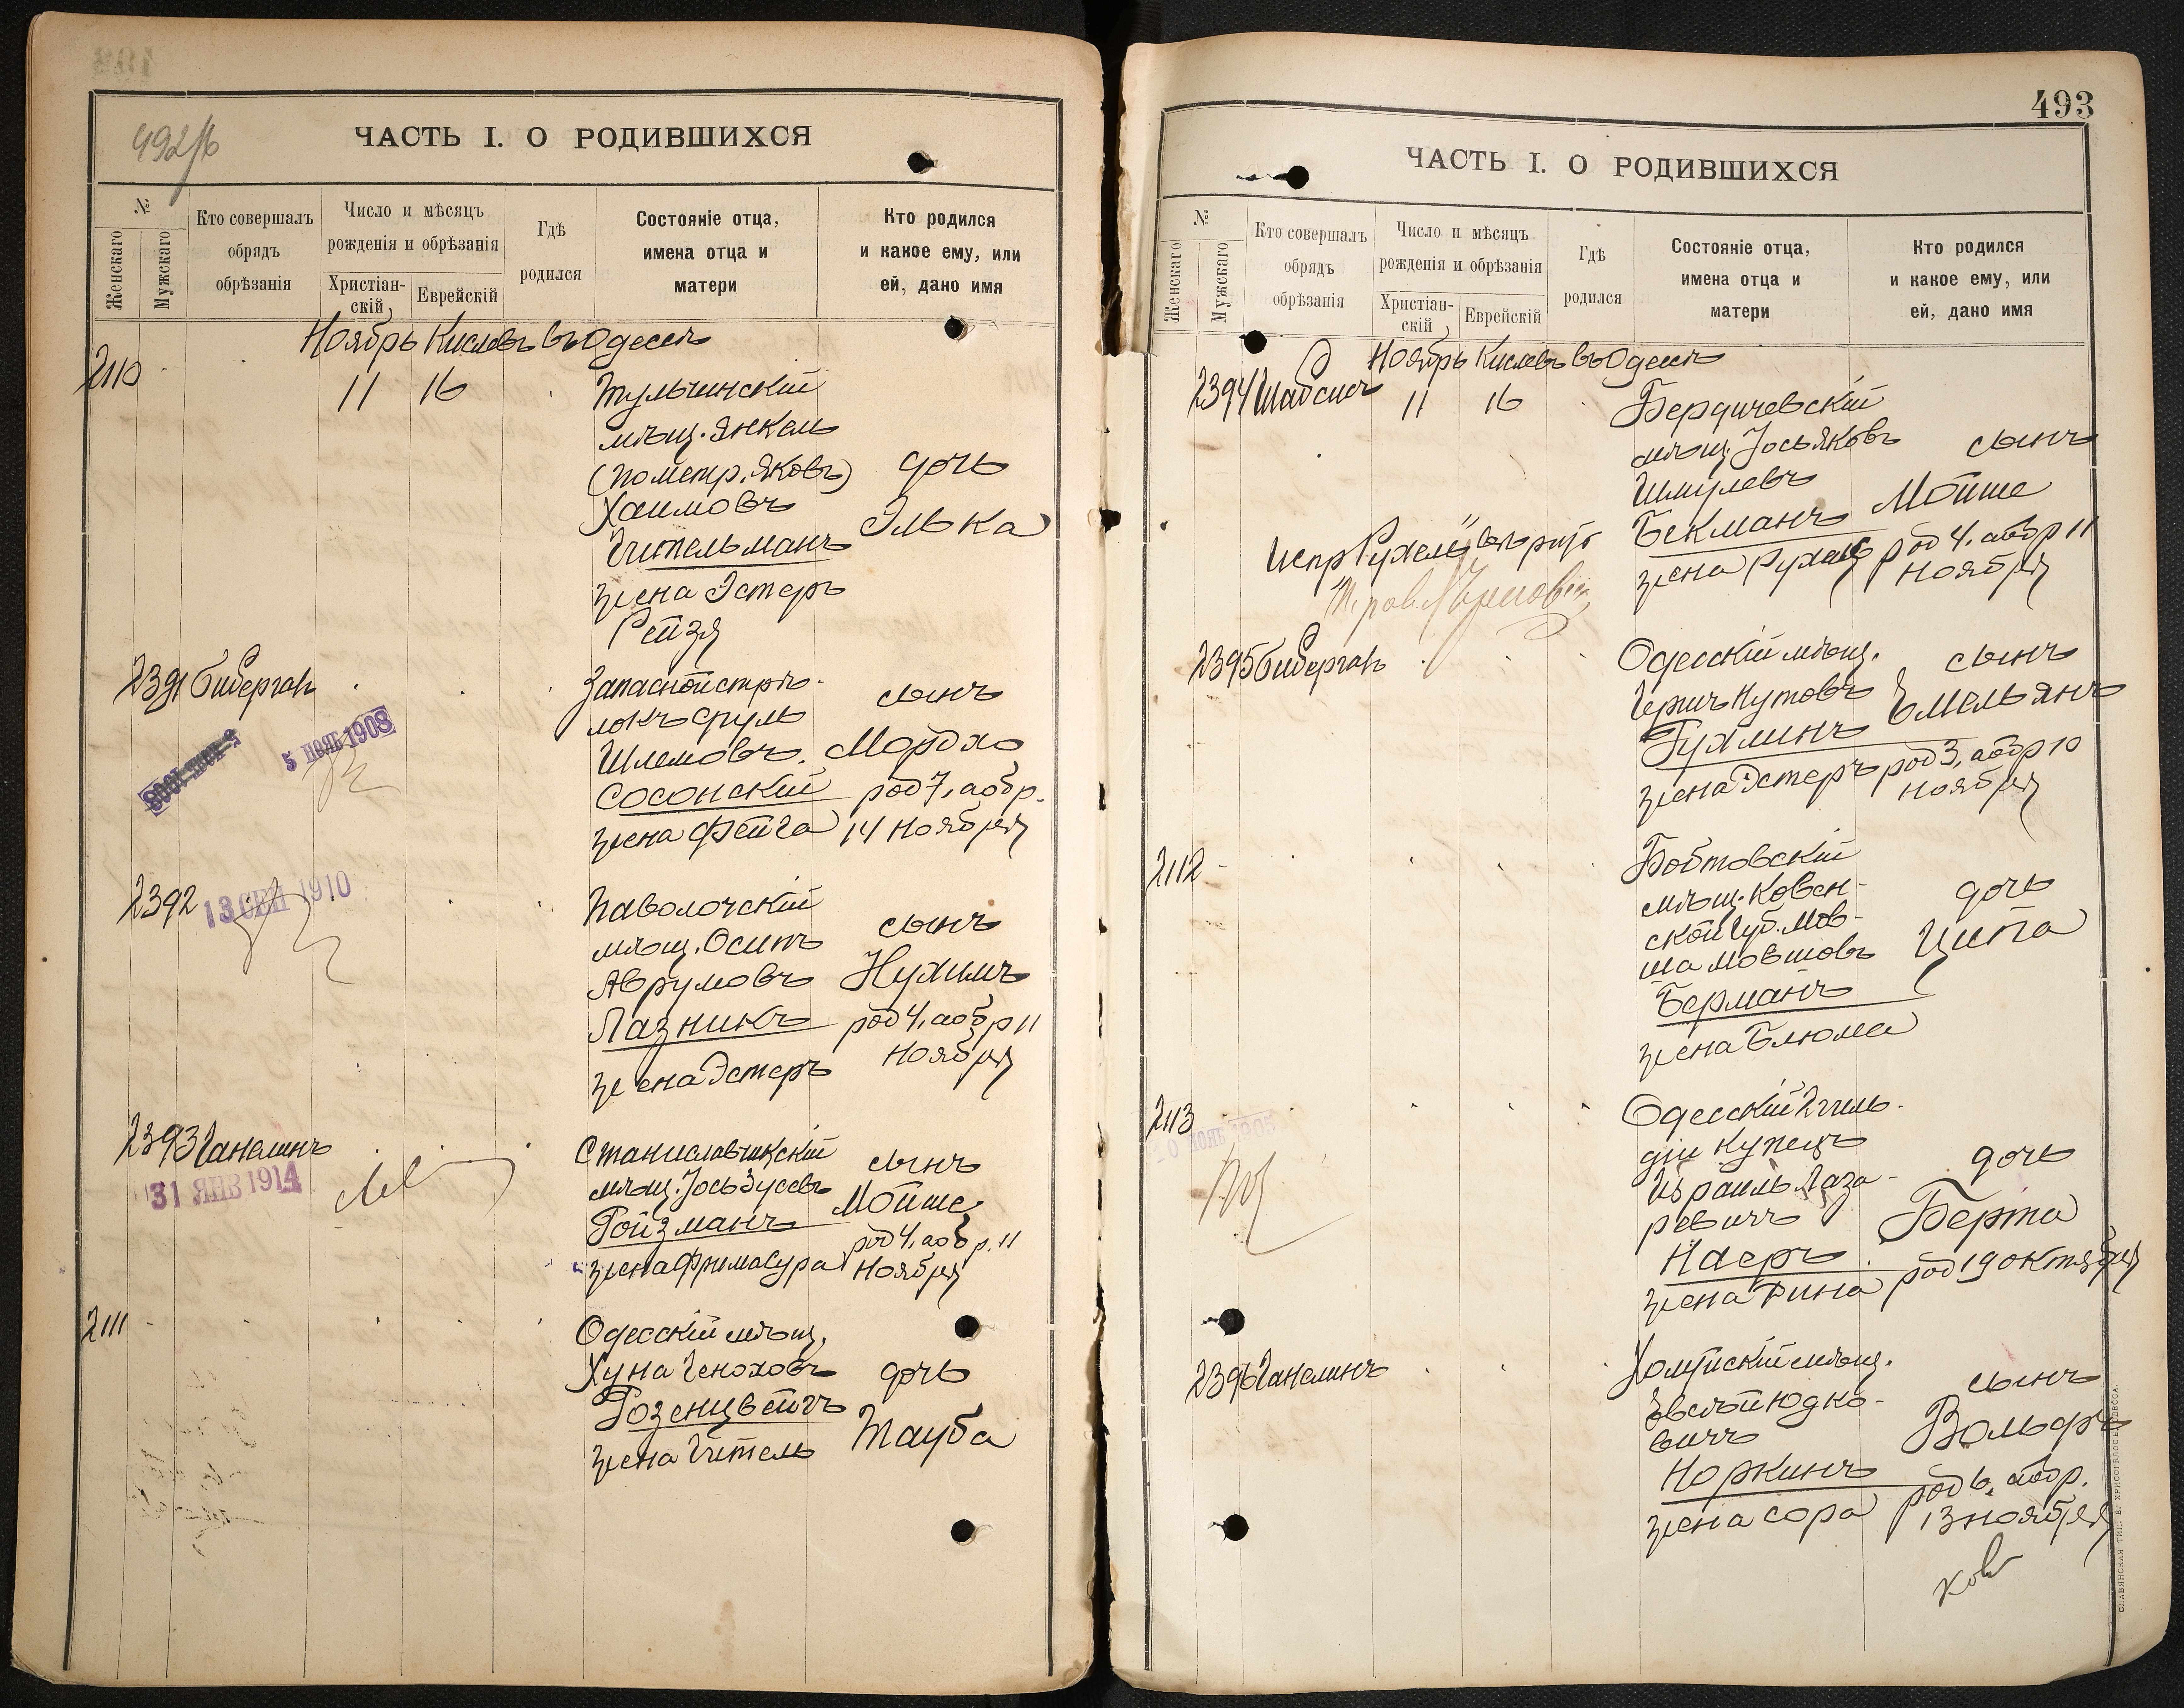 492/б
ЧАСТЬ I. О РОДИВШИХСЯ
№
Женскаго
Мужскаго
Кто совершалъ
обрядъ
обрѣзанія
Число и мѣсяцъ
рожденія и обрѣзанія
Христіан-
скій
Еврейскій
Гдѣ
родился
Состояніе отца,
имена отца и
матери
Кто родился
и какое ему, или
ей, дано имя
Ноябрь Кислевъ въ Одессѣ
2110
11 16
Тульчинскій
мѣщ. Янкель
(по метр. Яковъ)
Хаимовъ
Гительманъ
жена Эстеръ
Рейзя
дочь
Элька
2391 Гибергалъ
5 НОЯБ 1908
Запасной стрѣ-
локъ Сруль
Шлемовъ
Сосонскій
жена Фейга
сынъ
Мордко
род 7, а обр.
14 Ноября
2392
13 СЕН 1910
Паволочскій
мѣщ. Осипъ
Аврумовъ
Лазникъ
жена Эстеръ
сынъ
Нухимъ
род 4, а обр 11
Ноября
2393 Ганелинъ
31 ЯНВ 1914
Станиславчикскій
мѣщ. Іось Зусевъ
Ройзманъ
жена Фрима Сура
сынъ
Мойше
род 4, а обр. 11
Ноября
2111
Одесскій мѣщ.
Хуна Геноховъ
Розенцвейгъ
жена Гитель
дочь
Тауба
493
ЧАСТЬ I. О РОДИВШИХСЯ
№
Женскаго
Мужскаго
Кто совершалъ
обрядъ
обрѣзанія
Число и мѣсяцъ
рожденія и обрѣзанія
Христіан-
скій
Еврейскій
Гдѣ
родился
Состояніе отца,
имена отца и
матери
Кто родился
и какое ему, или
ей, дано имя
Ноябрь Кислевъ въ Одессѣ
2394 Шабсисъ
11 16
Бердичевскій
мѣщ. Іось Яковъ
Шмулевъ
Бекманъ
жена Рухель
сынъ
Мойше
род 4, а обр 11
ноября
Испр "Рухель"
2395 Гибергалъ
Одесскій мѣщ.
Гершъ Нутовъ
Гухлинъ
жена Эстеръ
сынъ
Емельянъ
род 3, а обр 10
ноября
2112
мѣщ. Ковен-
ской Губ. Мов-
ша Мовшовъ
Берманъ
жена Блюма
дочь
Ципа
2113
Одесскій 2 гиль-
діи купецъ
Израиль Лаза-
ревичъ
Наеръ
жена Рина
дочь
Берта
род 19 октября
2396 Ганелинъ
Хомускій мѣщ.
Евсѣй Юдко-
вичъ
Норкинъ
жена Сора
сынъ
Вольфъ
род 6, а обр.
13 ноября
СЛАВЯНСКАЯ ТИП. Е. ХРИСОГЕЛОС. ОДЕССА.